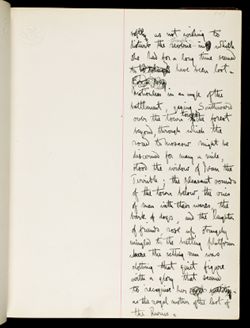 softly, as not wishing to
disturb the reverie in which
she had for a long time seemed
to have been lost.
Motionless in an angle of the
battlement, gazing Southward
over the town to the forest
beyond through which the
road to Moscow might be
discerned for many a mile,
stood the widow of Ivan the
Terrible. The pleasant sounds
of the town below, the cries
of men with their wares, the
bark of dogs, and the laughter
of friends rose up strangely
mingled to the battling platform
where the setting sun was
clothing that quiet figure
with a glory that seemed
to recognise her
as the royal mother of the last of
the Ruriks.